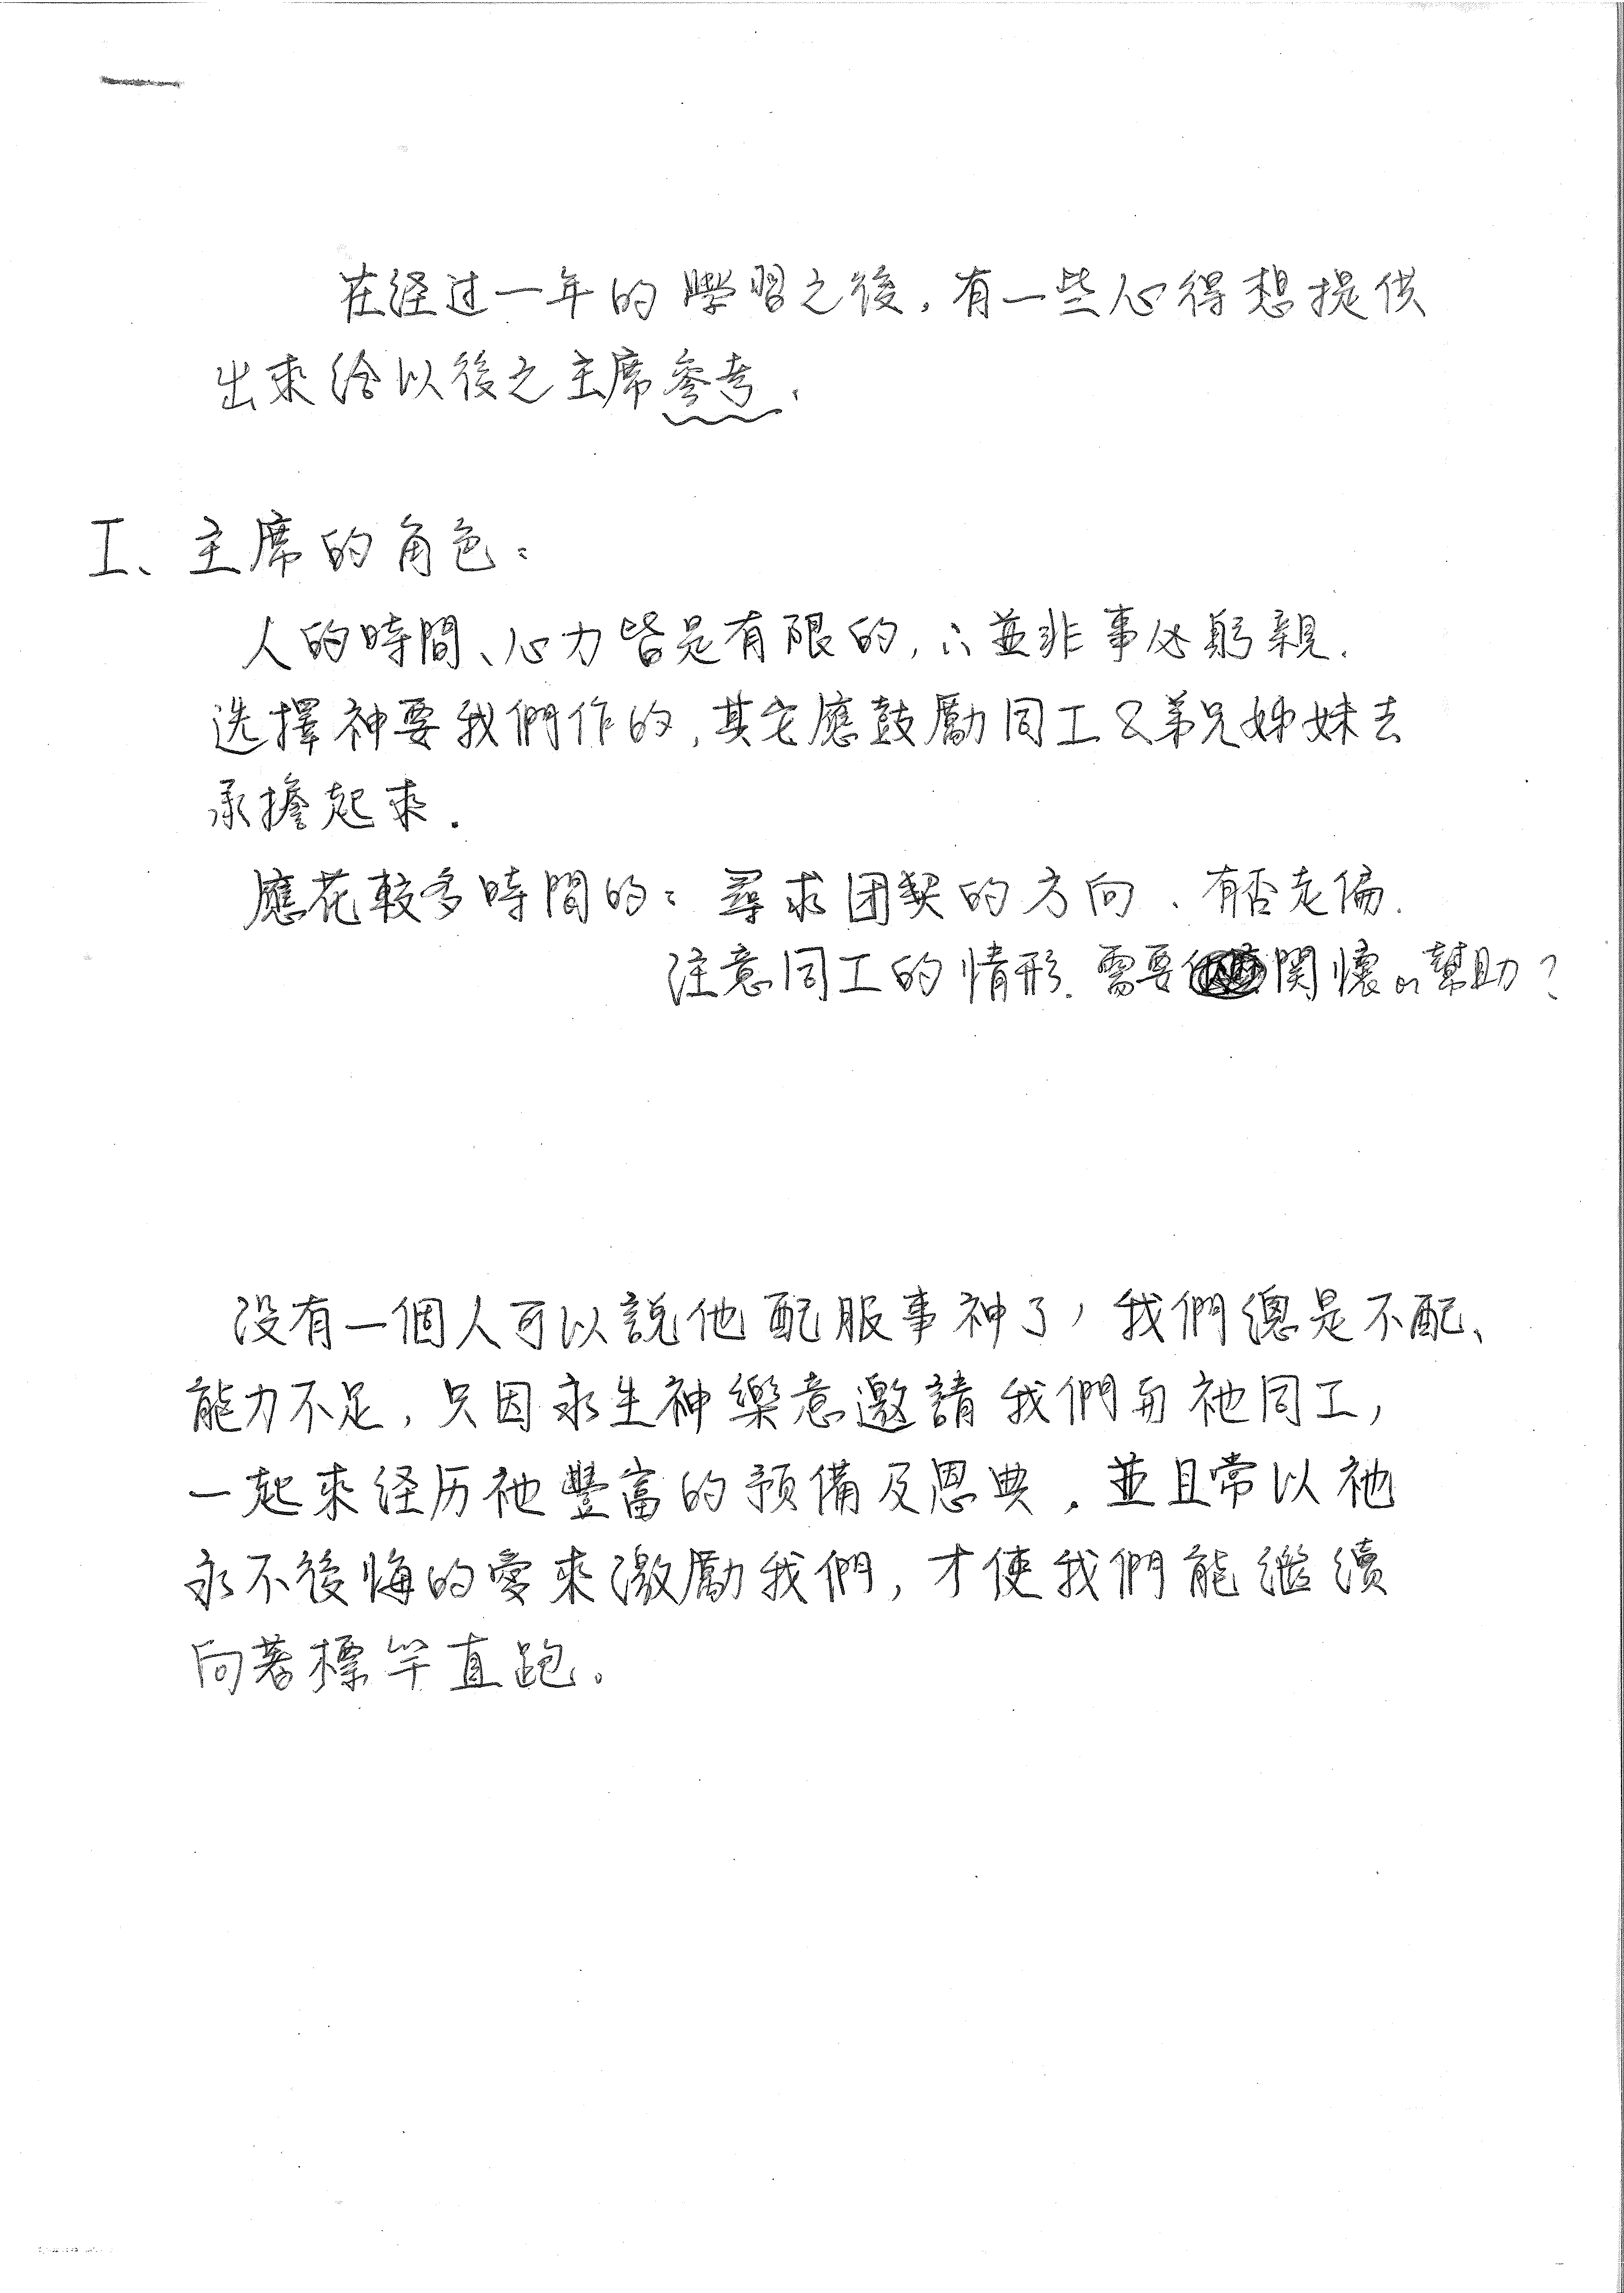 在経过一年的學習之後，有一些心得想提供
出來给以後之主席參考、
I、主席的角色：
人的時間、心力皆是有限的，∴並非事必躬親．
选擇神要我們作的，其它應鼓勵同工及弟兄姊妹去
承擔起來．
應花較多時間的：尋求团契的方向、有否走偏．
注意同工的情形．需要関懷or幫助？
没有一個人可以說他配服事神了，我們總是不配、
能力不足，只因永生神樂意邀請我們与祂同工，
一起來経历祂豐富的預備及恩典．並且常以祂
永不後悔的愛來激勵我們，才使我們能繼續
向著標竿直跑。